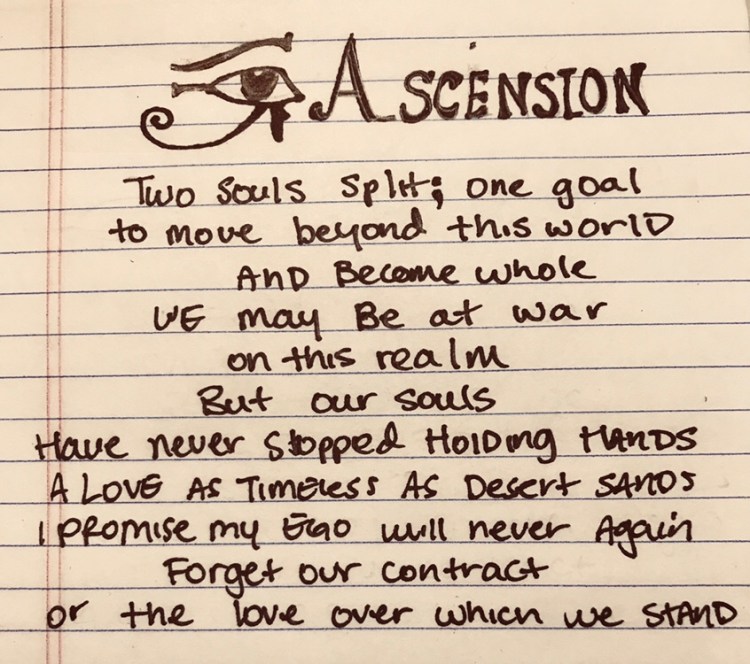 ASCENSION
Two Souls Split; one goal
to move beyond this world
AND Become whole
WE may Be at war
on this realm
But our souls
Have never stopped HolDing HANDS
A LOVE AS TIMEless AS Desert SANDS
I PROMISE my EGO will never Again
Forget our contract
or the love over which we STAND